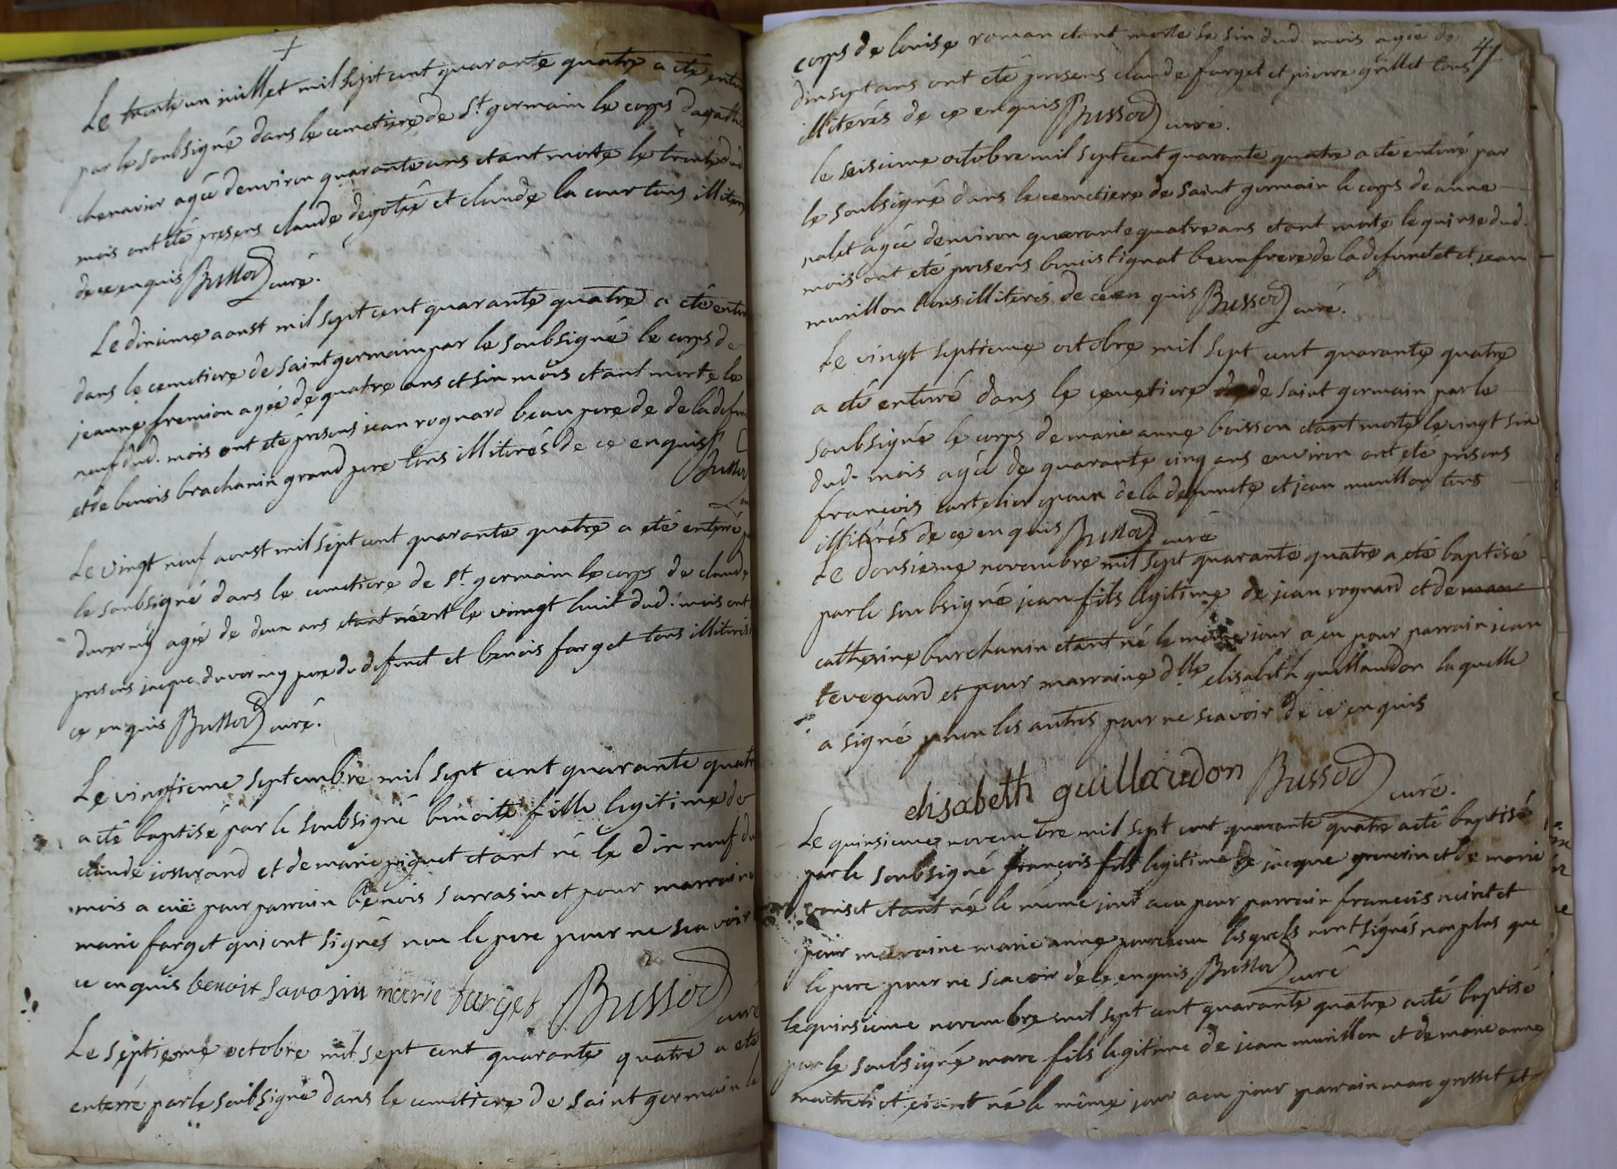 Le trente un juillet mil sept cent quarante quatre a eté enter
par le soubsigné dans le cemetiere de St. germain le corps dagathe
chenavier agée denviron quarante ans etant morte le trente dud
mois ont été presens claude degoté et claude la cour tous illiterés
de ce enquis Bussod curé.
Le dixieme aoust mil sept cent quarante quatre a eté enter
dans le cemetiere de saint germain par le soubsigné le corps de
jeanne fremion agée de quatre ans et six mois etant morte le
neuf dud. mois ont eté presens jean rognard beau pere de de la defun
et de benois brachanin grand pere tous illiterés de ce enquis
Bussod
Le vingt neuf aoust mil sept cent quarante quatre a eté enterré
le soubsigné dans le cemetiere de St. germain le corps de claude
duverny agée de deux ans etant mort le vingt huit dud. mois ont
presens jacque duverny pere du defunct et benois farget tous illiterés
ce enquis Bussod curé.
Le vingtieme septembre mil sept cent quarante quatre
a eté baptisé par le soubsigné benoite fille legitime de
claude josserand et de marie piquet etant né le dix neuf du
mois a eüe pour parrain benois sarrasin et pour marraine
marie farget qui ont signés non le pere pour ne scavoir
ce enquis benoit sarasin marie farget Bussod curé
Le septieme octobre mil sept cent quarante quatre a eté
enterré par le soubsigné dans le cemetiere de saint germain le
41
corps de louise roman etant morte le six dud. mois agée de
dixsept ans ont eté presens claude farget et pierre grillet tous
illiterés de ce enquis Bussod curé.
le seisieme octobre mil sept cent quarante quatre a eté enterré par
le soubsigné dans le cemetiere de saint germain le corps de anne
palet agée denviron quarante quatre ans etant morte le quinse dud.
mois ont eté presens benois tignat beaufrere de la defunctet et jean
murillon tous illiterés de ce en quis Bussod curé.
Le vingt septieme octobre mil sept cent quarante quatre
a eté enterré dans le cemetiere de saint germain par le
soubsigné le corps de marie anne boisson etant morte le vingt six
dud. mois agée de quarante cinq ans environ ont eté presens
francois epoux de la defuncte et jean murillon tous
illiterés de ce enquis Bussod curé
Le donsieme novembre mil sept quarante quatre a eté baptisé
par le soubsigné jean fils legitime de jean rognard et de
catherine burchanin etant né le meme jour a eu pour parrain jean
tevenard et pour marraine dlle elisabeth guillaudon laquelle
a signé non les autres pour ne scavoir de ce enquis
elisabeth guillaudon Bussod curé.
Le quinsieme novembre mil sept cent quarante quatre a eté baptisé
par le soubsigné françois fils legitime de jacque et de marie
etant né le même jour a eu pour parrain francois noiret et
pour marraine marie anne lesquels nont signés non plus que
le pere pour ne scavoir de ce enquis Bussod curé
le quinsieme novembre mil sept cent quarante quatre a eté baptisé
par le soubsigné marc fils legitime de jean murillon et de marie anne
etant né le même jour a eu pour parrain marc grosset et